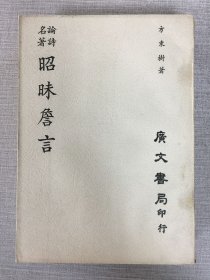 方東樹著
論詩名著
昭昧詹言
廣文書局印行